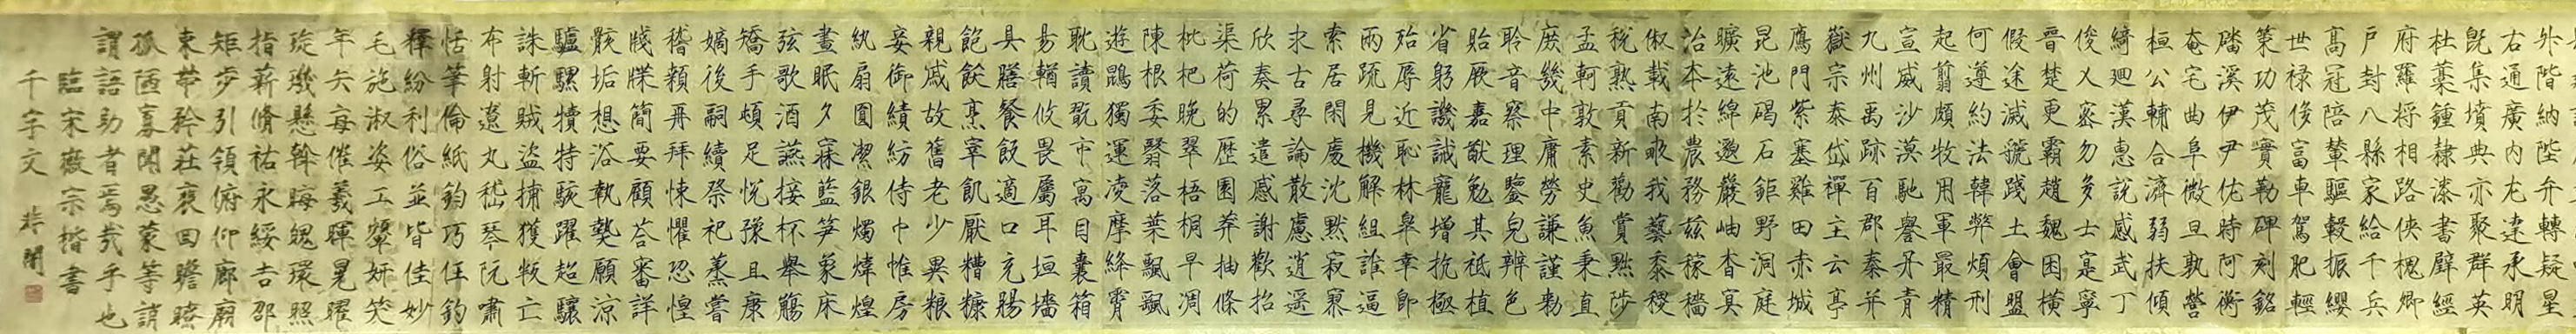 升階納陛弁轉疑星
右通廣內左達承明
既集墳典亦聚群英
杜藁鍾隸漆書壁經
府羅將相路俠槐卿
戶封八縣家給千兵
高冠陪輦驅轂振纓
世祿侈富車駕肥輕
策功茂實勒碑刻銘
磻溪伊尹佐時阿衡
奄宅曲阜微旦孰營
桓公輔合濟弱扶傾
綺迴漢惠說感武丁
俊乂密勿多士寔寧
晉楚更霸趙魏困橫
假途滅虢踐土會盟
何遵約法韓弊煩刑
起翦頗牧用軍最精
宣威沙漠馳譽丹青
九州禹跡百郡秦并
嶽宗泰岱禪主云亭
鴈門紫塞雞田赤城
昆池碣石鉅野洞庭
曠遠綿邈巖岫杳冥
治本於農務茲稼穡
俶載南畝我藝黍稷
稅熟貢新勸賞黜陟
孟軻敦素史魚秉直
庶幾中庸勞謙謹勅
聆音察理鑒皃辨色
貽厥嘉猷勉其祗植
省躬譏誡寵增抗極
殆辱近恥林皋幸即
兩疏見機解組誰逼
索居閑處沈默寂寥
求古尋論散慮逍遙
欣奏累遣慼謝歡招
渠荷的歷園莽抽條
枇杷晚翠梧桐早凋
陳根委翳落葉飄颻
遊鵾獨運凌摩絳霄
耽讀翫市寓目囊箱
易輶攸畏屬耳垣墻
具膳餐飯適口充腸
飽飫烹宰飢厭糟糠
親戚故舊老少異糧
妾御績紡侍巾帷房
紈扇圓潔銀燭煒煌
晝眠夕寐藍笋象床
弦歌酒讌接杯舉觴
矯手頓足悅豫且康
嫡後嗣續祭祀蒸嘗
稽顙再拜悚懼恐惶
牋牒簡要顧答審詳
骸垢想浴執熱願涼
驢騾犢特駭躍超驤
誅斬賊盜捕獲叛亡
布射遼丸嵇琴阮嘯
恬筆倫紙鈞巧任釣
釋紛利俗並皆佳妙
毛施淑姿工顰妍笑
年矢每催羲暉晃曜
琁璣懸斡晦魄環照
指薪脩祜永綏吉邵
矩步引領俯仰廊廟
束帶矜莊裵回瞻眺
孤陋寡聞愚蒙等誚
謂語助者焉哉乎也
臨宋徽宗楷書
千字文